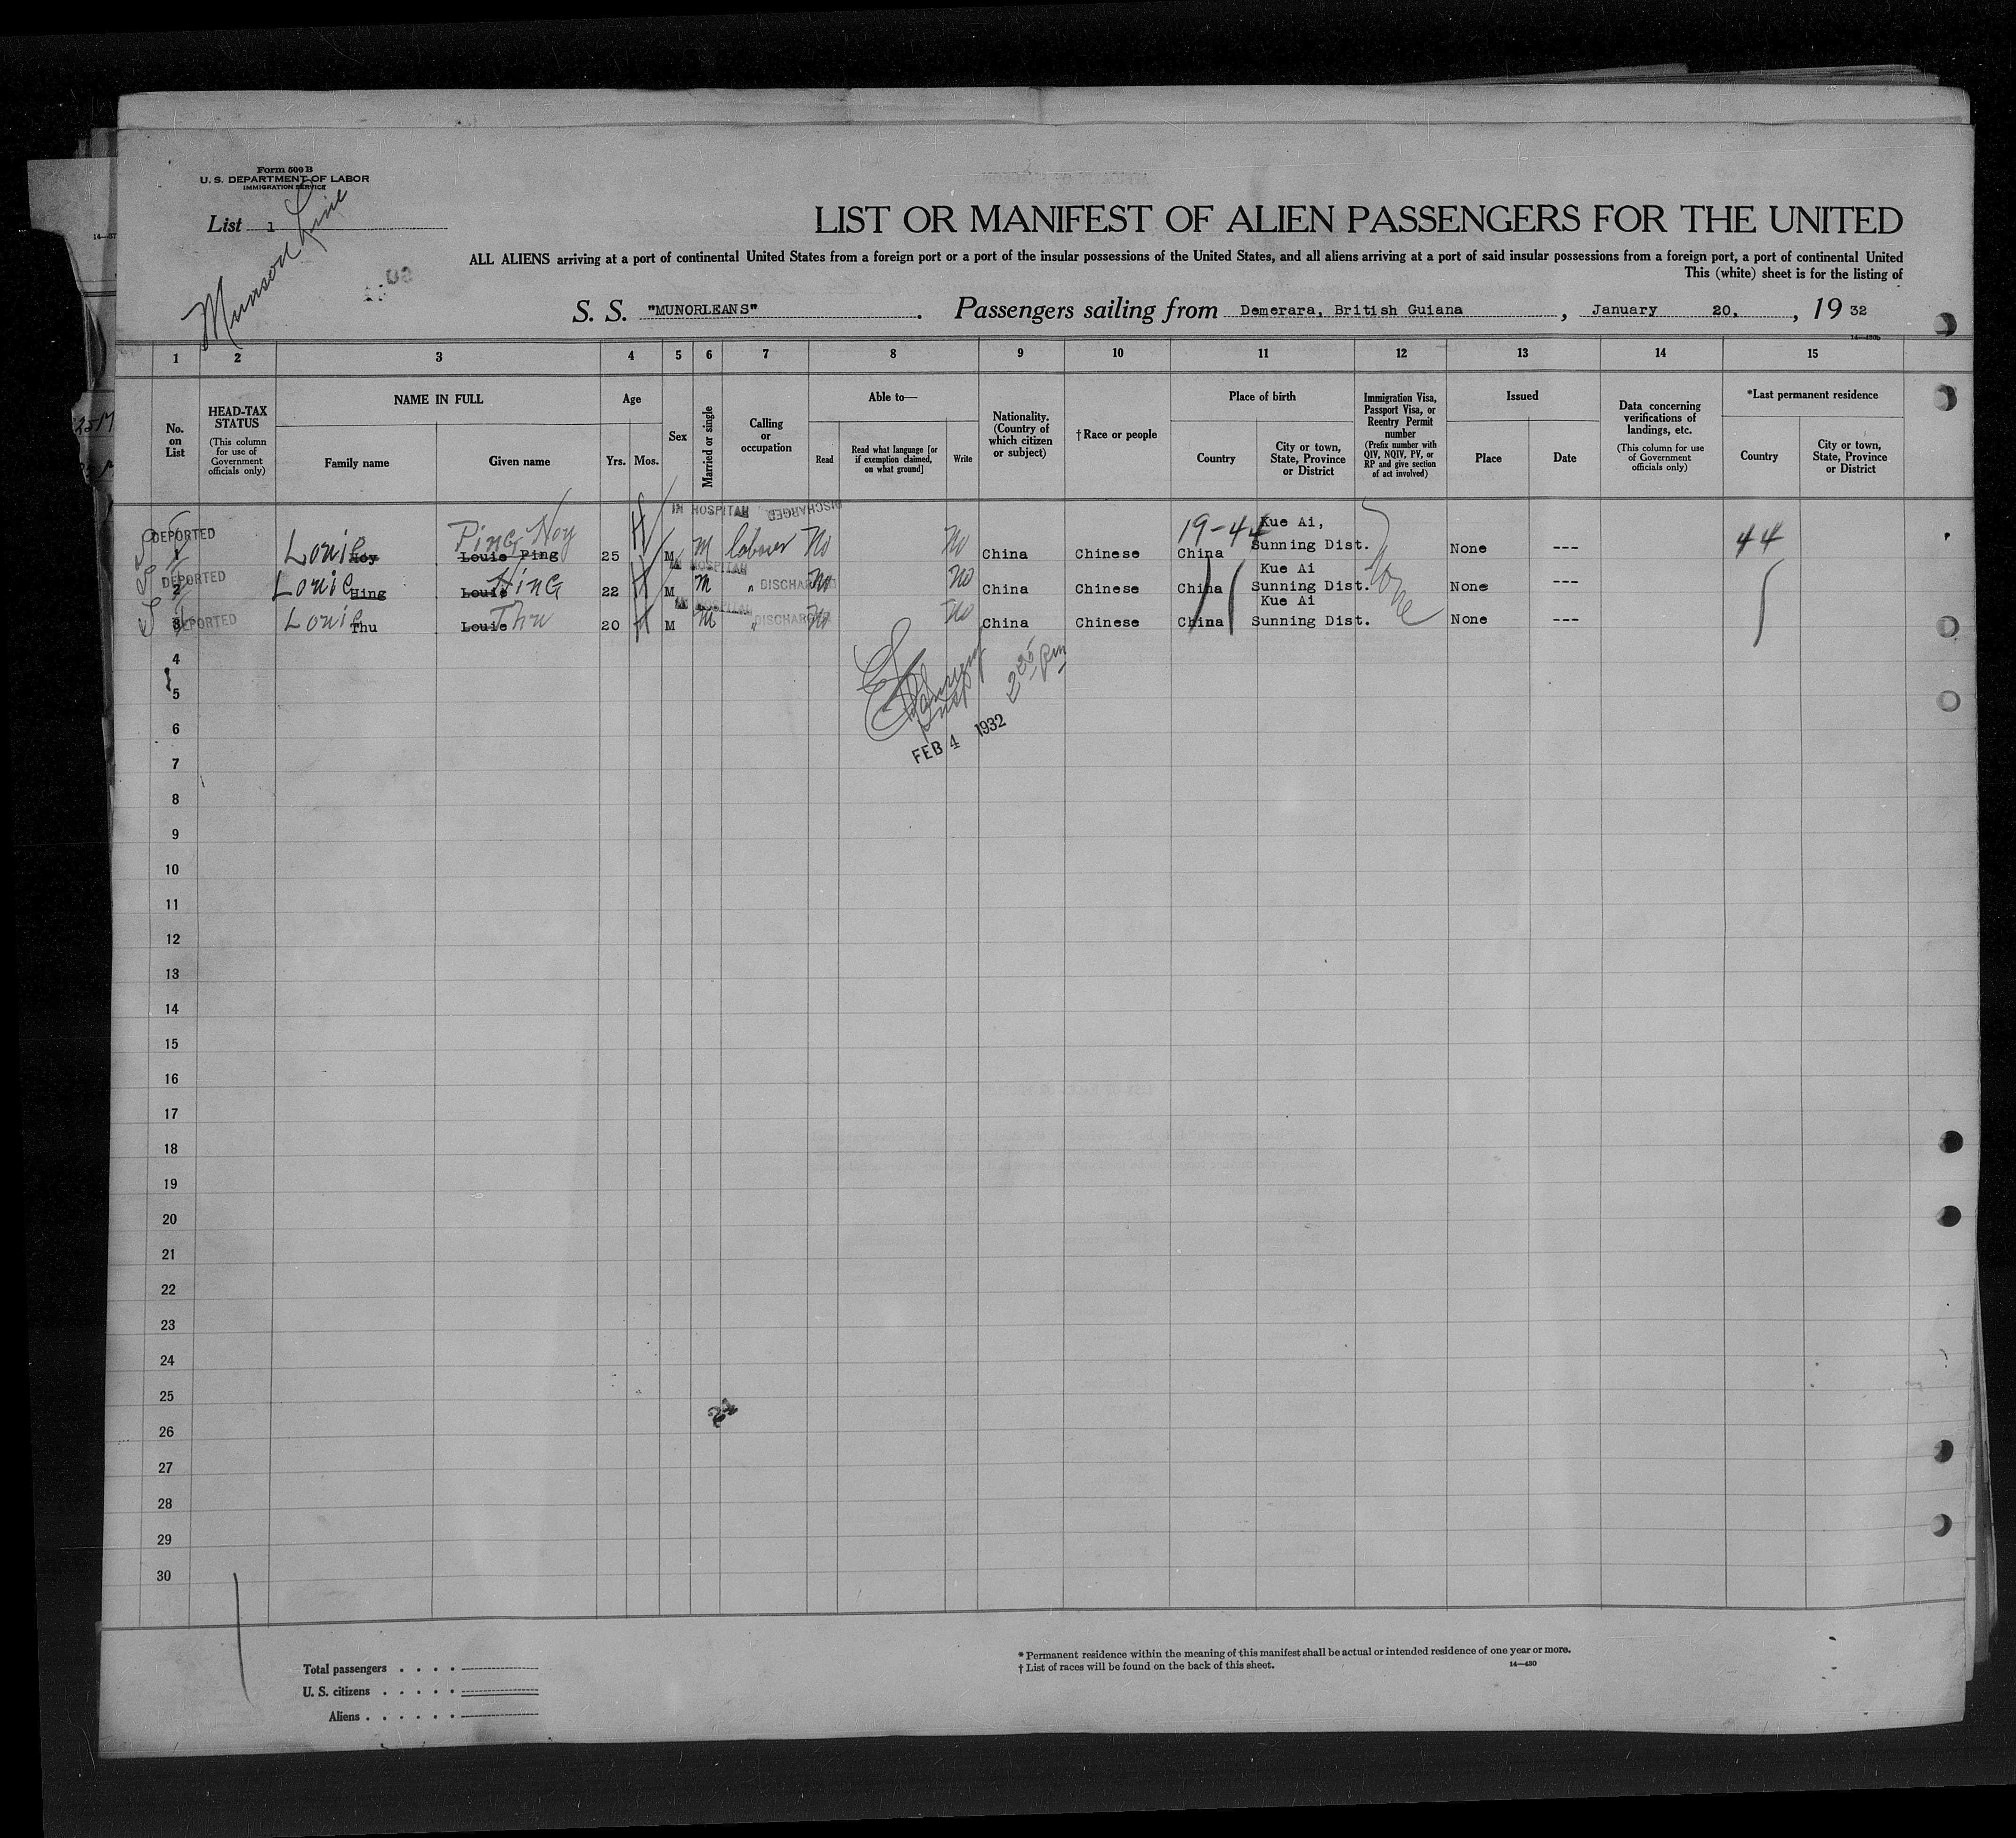 Form 500 B
U. S. DEPARTMENT OF LABOR
IMMIGRATION SERVICE
List 1
Munson Line
LIST OR MANIFEST OF ALIEN PASSENGERS FOR THE UNITED
ALL ALIENS arriving at a port of continental United States from a foreign port or a port of the insular possessions of the United States, and all aliens arriving at a port of said insular possessions from a foreign port, a port of continental United
This (white) sheet is for the listing of
S. S. "MUNORLEANS". Passengers sailing from Demerara, British Guiana, January 20, , 19 32
1 2 3 4 5 6 7 8 9 10 11 12 13 14 15
No. on List
HEAD-TAX STATUS
(This column for use of Government officials only)
NAME IN FULL
Family name
Given name
Age
Yrs. Mos.
Sex
Married or single
Calling or occupation
Able to—
Read
Read what language [or if exemption claimed, on what ground]
Write
Nationality. (Country of which citizen or subject)
†Race or people
Place of birth
Country
City or town, State, Province or District
Immigration Visa, Passport Visa, or Reentry Permit number
(Prefix number with QIV, NQIV, PV, or RP and give section of act involved)
Issued
Place
Date
Data concerning verifications of landings, etc.
(This column for use of Government officials only)
*Last permanent residence
Country
City or town, State, Province or District
IN HOSPITAL DISCHARGED
DEPORTED 1 Louie Hoy Ping Hoy Louie Ping 25 M M labourer No No China Chinese 19-44 China Kue Ai, Sunning Dist. None None --- 44
IN HOSPITAL
DEPORTED 2 Louie Hing Louie Hing 22 M M " DISCHARGED No No China Chinese China Kue Ai Sunning Dist. None ---
IN HOSPITAL
DEPORTED 3 Louie Thu Louie Thu 20 M M " DISCHARGED No No China Chinese China Kue Ai Sunning Dist. None ---
4
5
6
7
8
9
10
11
12
13
14
15
16
17
18
19
20
21
22
23
24
25
26
27
28
29
30
Insp
2 25 pm
FEB 4 1932
21
Total passengers
U. S. citizens
Aliens
* Permanent residence within the meaning of this manifest shall be actual or intended residence of one year or more.
† List of races will be found on the back of this sheet.
14—430